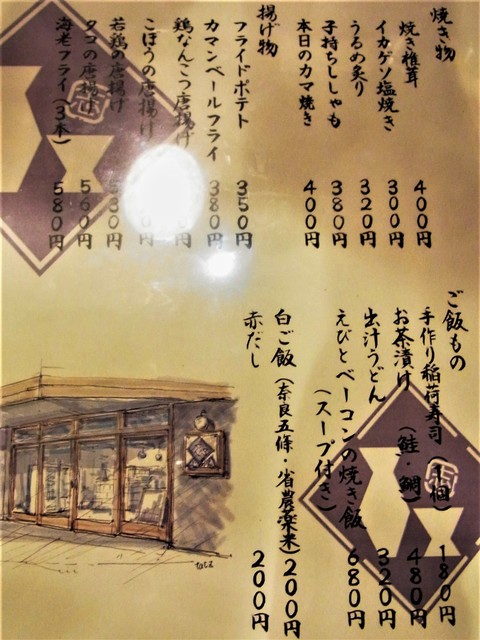 焼き物
焼き椎茸 400円
イカゲソ塩焼き 300円
うるめ炙り 320円
子持ちししゃも 380円
本日のカマ焼き 400円
揚げ物
フライドポテト 350円
カマンベールフライ 380円
鶏なんこつ唐揚げ 円
ごぼうの唐揚げ 円
若鶏の唐揚げ 530円
タコの唐揚げ 560円
海老フライ(3本) 580円
ご飯もの
手作り稲荷寿司(1個) 180円
お茶漬け(鮭・鯛) 480円
出汁うどん 320円
えびとベーコンの焼き飯 680円
(スープ付き)
白ご飯(奈良五條・省農楽米) 200円
赤だし 200円